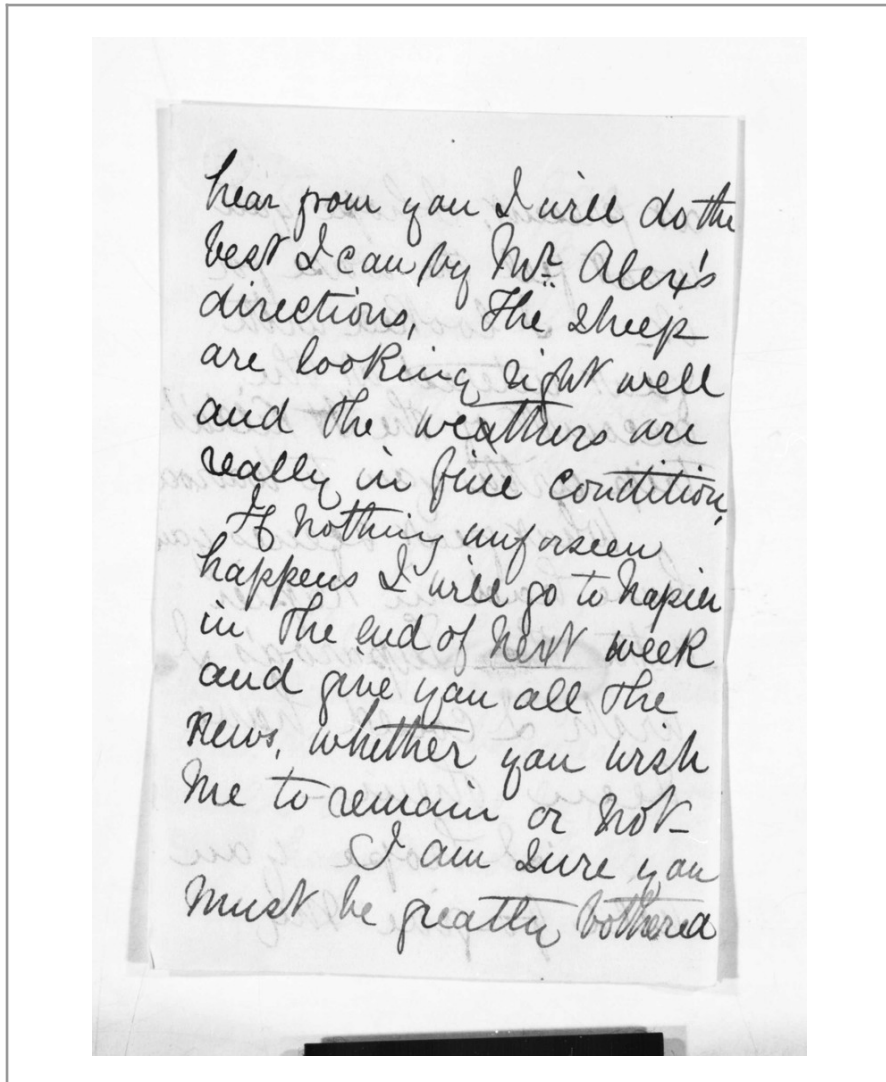 hear from you I will do the
best I can by Mr. Alex's
directions. The sheep
are looking right well
and the weathers are
really in fine condition,
If nothing unforseen
happens I will go to Napier
in the end of next week
and give you all the
news, whether you wish
me to remain or not -
I am sure you
must be greatly bothered